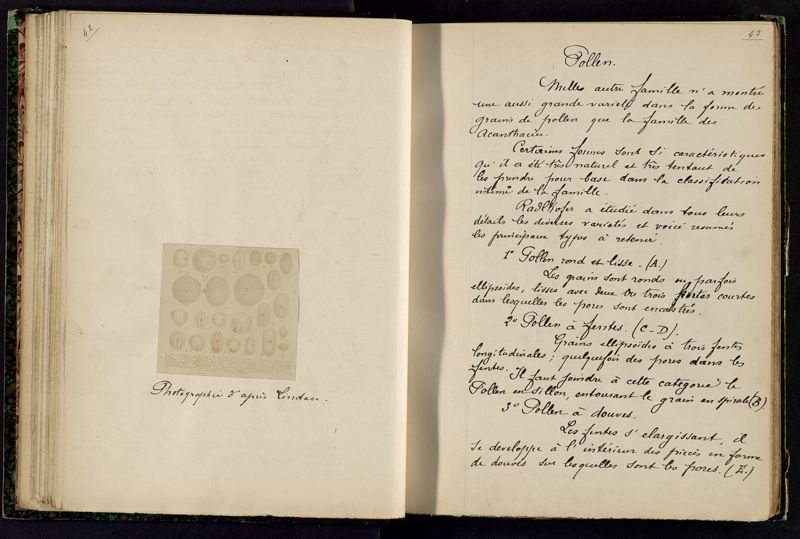 42
Photographie d'après Lindau.
43
Pollen.
Nulles autre famille n'a montré
une aussi grande varieté dans la forme des
grains de pollen que la famille des
Acanthacées.
Certaines formes sont si caractéristiques
qu'il a été très naturel et très tentant de
les prendre pour base dans la classification
intime de la famille.
Radlkofer a étudié dans tous leurs
détails les diverses variétés et voici resumés
les principaux types à retenir.
1° Pollen rond et lisse. (A.)
Les grains sont ronds ou parfois
ellipsoïdes, lisses avec deux ou trois fentes courtes
dans lesquelles les pores sont encastrés.
2° Pollen à fentes. (C-D).
Grains ellipsoïdes à trois fentes
longitudinales; quelquefois des pores dans les
fentes. Il faut joindre à cette catégorie le
Pollen en sillon, entourant le grain en spirale (B)
3° Pollen à douves.
Les fentes s'elargissant, il
se developpe à l'intérieur des pièces en forme
de douves sur lesquelles sont les pores. (E.)